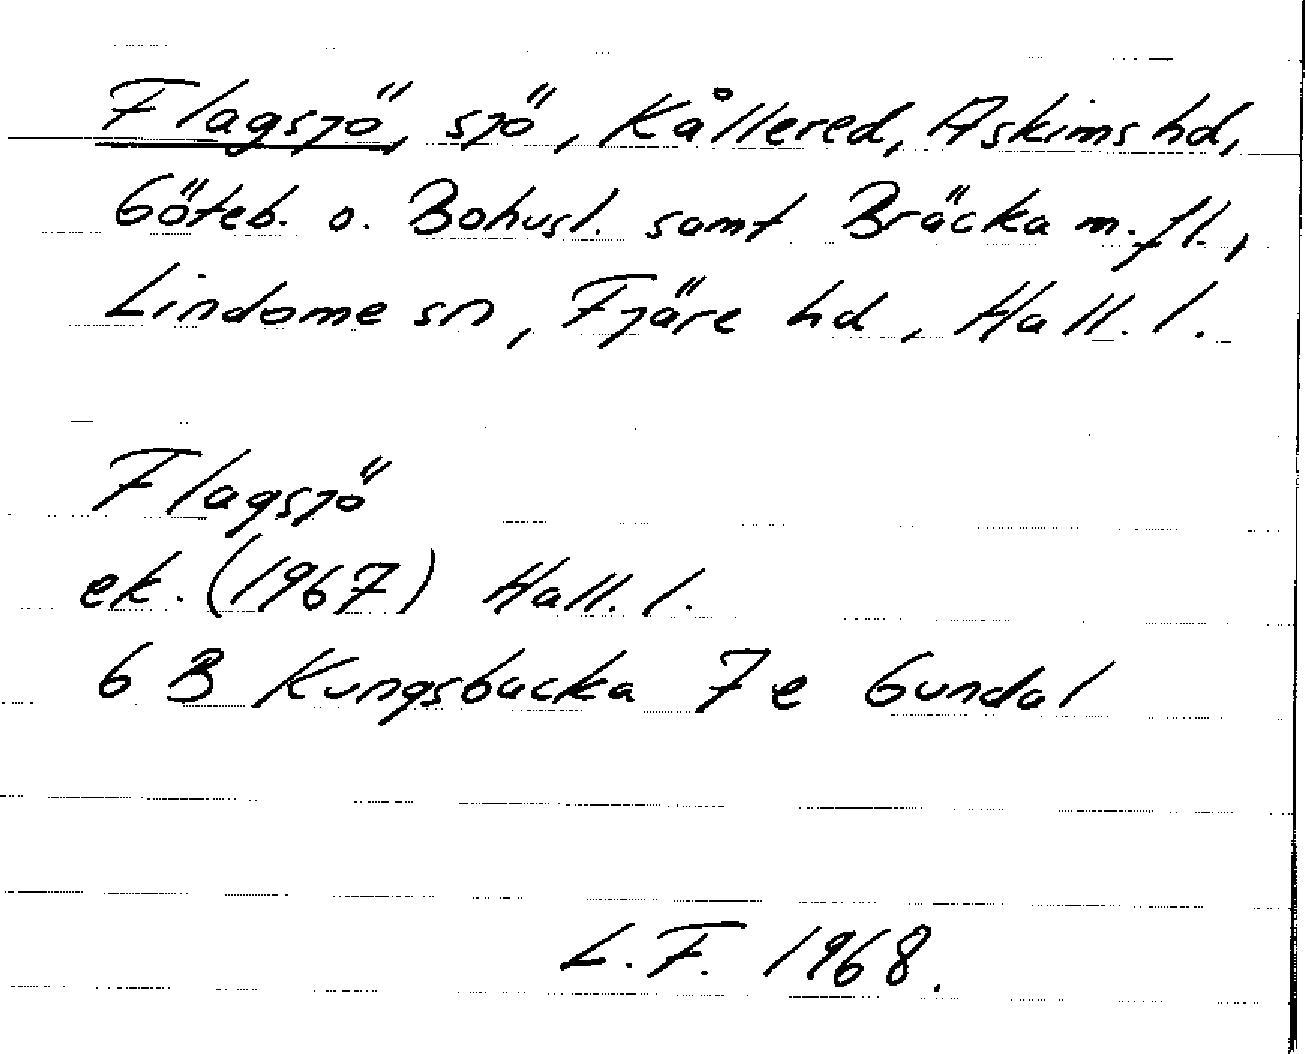 Flagsjö, sjö, Kållered, Askims hd,
Göteb. o. Bohusl. samt Bräcka m. fl.,
Lindome sn, Fjäre hd, Hall. l.
Flagsjö
ek. (1967) Hall. l.
6 B Kungsbacka 7 e Gundal
L. F. 1968.